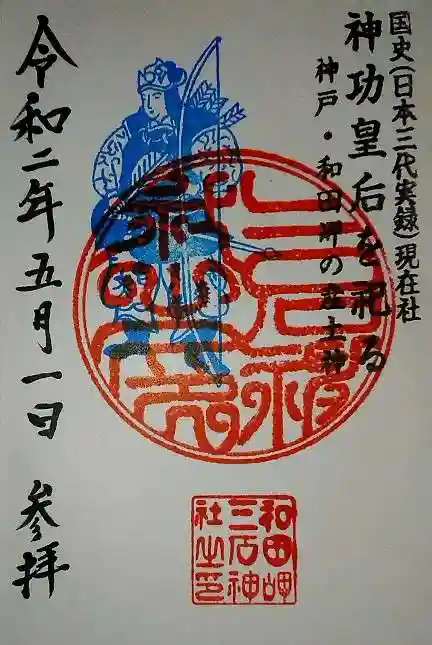 国史(日本三代実録)現在社
神功皇后を祀る
神戸・和田岬の産土神
三石神社
令和二年五月一日 参拝
和田岬
三石神
社之印